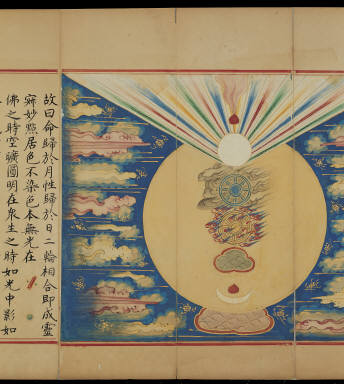 故曰命歸於月性歸於日二輪相合即成靈
寂妙㸃居色不染色本無光在
佛之時空曠圓明在衆生之時如光中影如